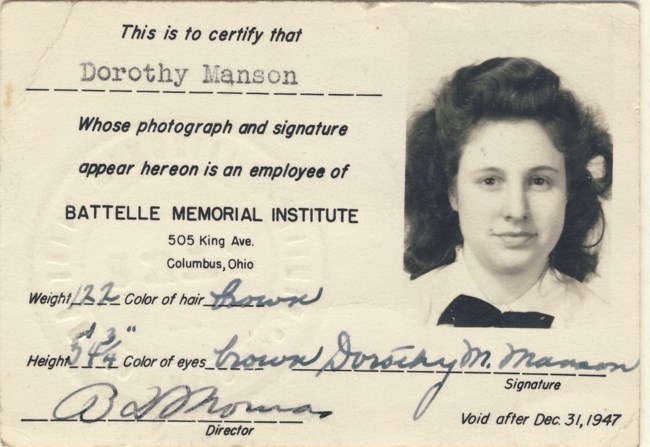 This is to certify that
Dorothy Manson
Whose photograph and signature
appear hereon is an employee of
BATTELLE MEMORIAL INSTITUTE
505 King Ave.
Columbus, Ohio
Weight 122 Color of hair brown
Height 5' 4 3/4" Color of eyes brown Dorothy M. Manson
Signature
B D Thomas
Director
Void after Dec. 31, 1947